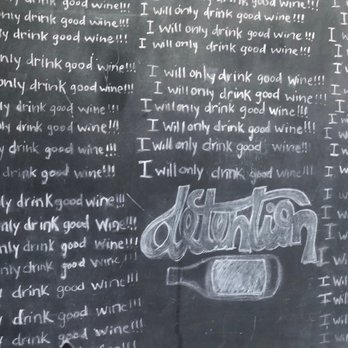 drink good wine!!!
drink good wine!!!
only drink good wine!!!
only drink good wine!!!
only drink good wine!!!
only drink good wine!!!
only drink good wine!!!
only drink good wine!!!
only drink good wine!!!
only drink good wine!!!
only drink good wine!!!
only drink good wine!!!
drink good wine!!!
drink good wine!!!
drink good wine!!!
I will only drink good wine!!!
I will only drink good wine!!!
I will only drink good wine!!!
I will only drink good wine!!!
I will only drink good wine!!!
I will only drink good wine!!!
I will only drink good wine!!!
I will only drink good wine!!!
I will only drink good wine!!!
detention